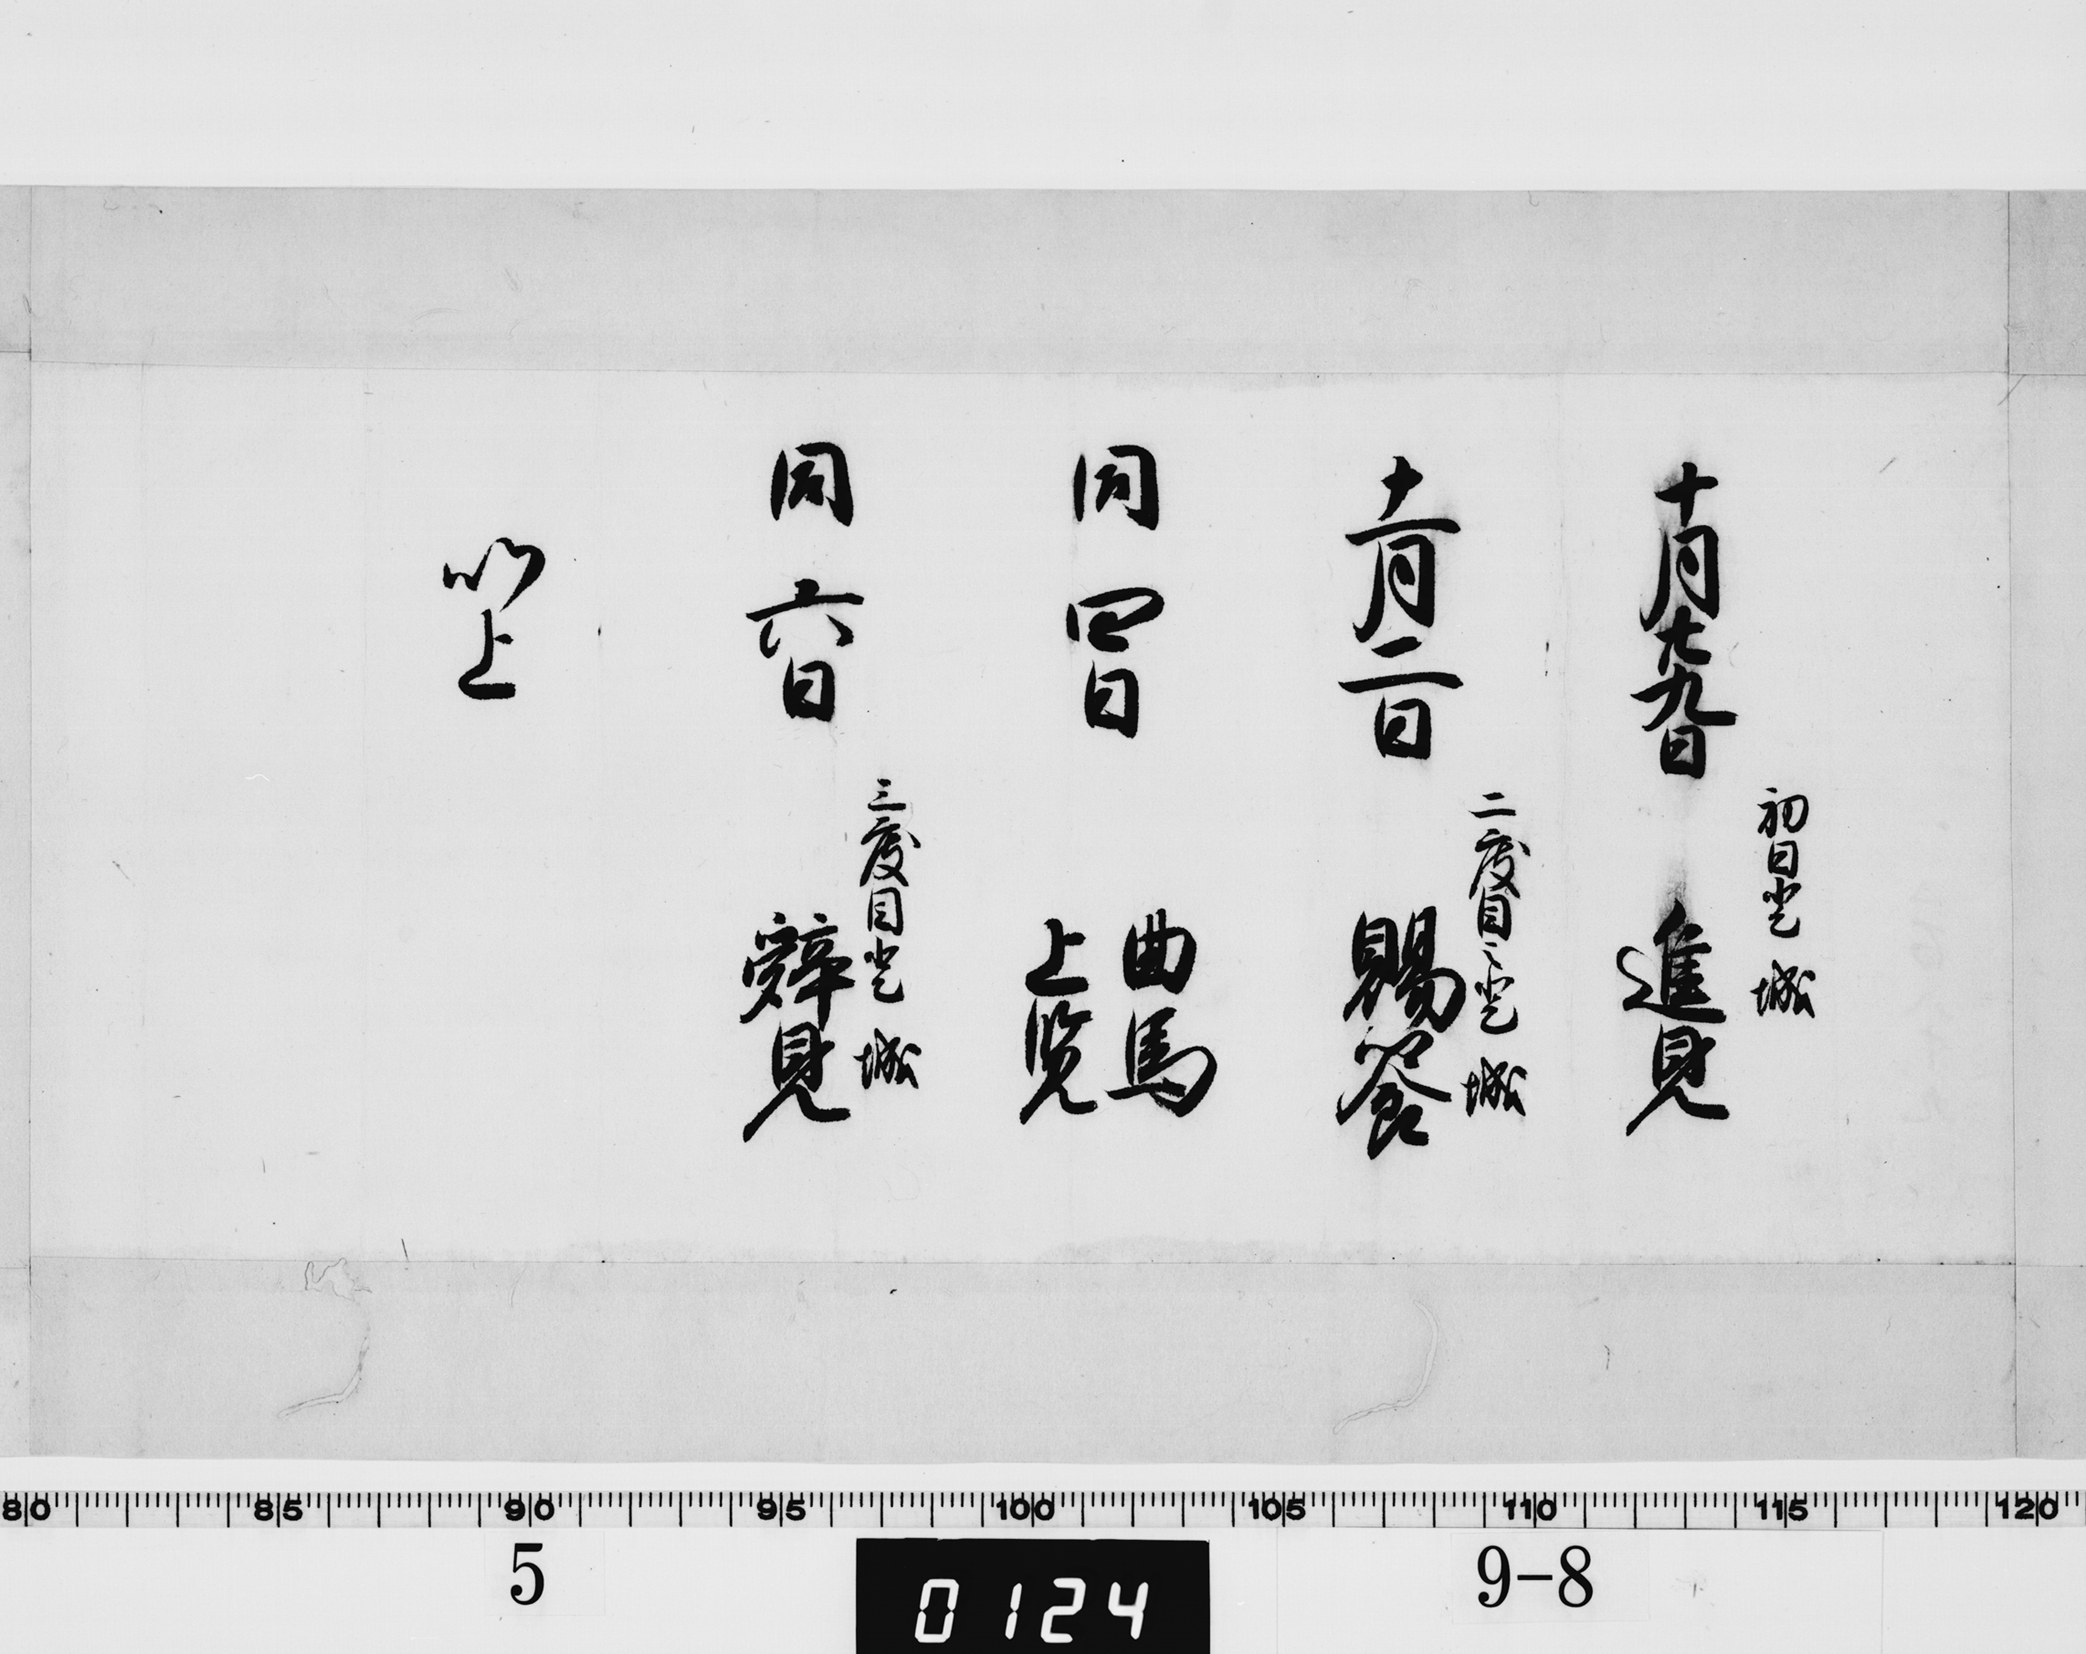 初日登 城
十月廿九日 進見
二度目之登 城
十一月二日 賜饗
同 四日 曲馬
上覧
三度目登 城
同 六日 辭見
以上
80 85 90 95 100 105 110 115 120
5
0124
9-8